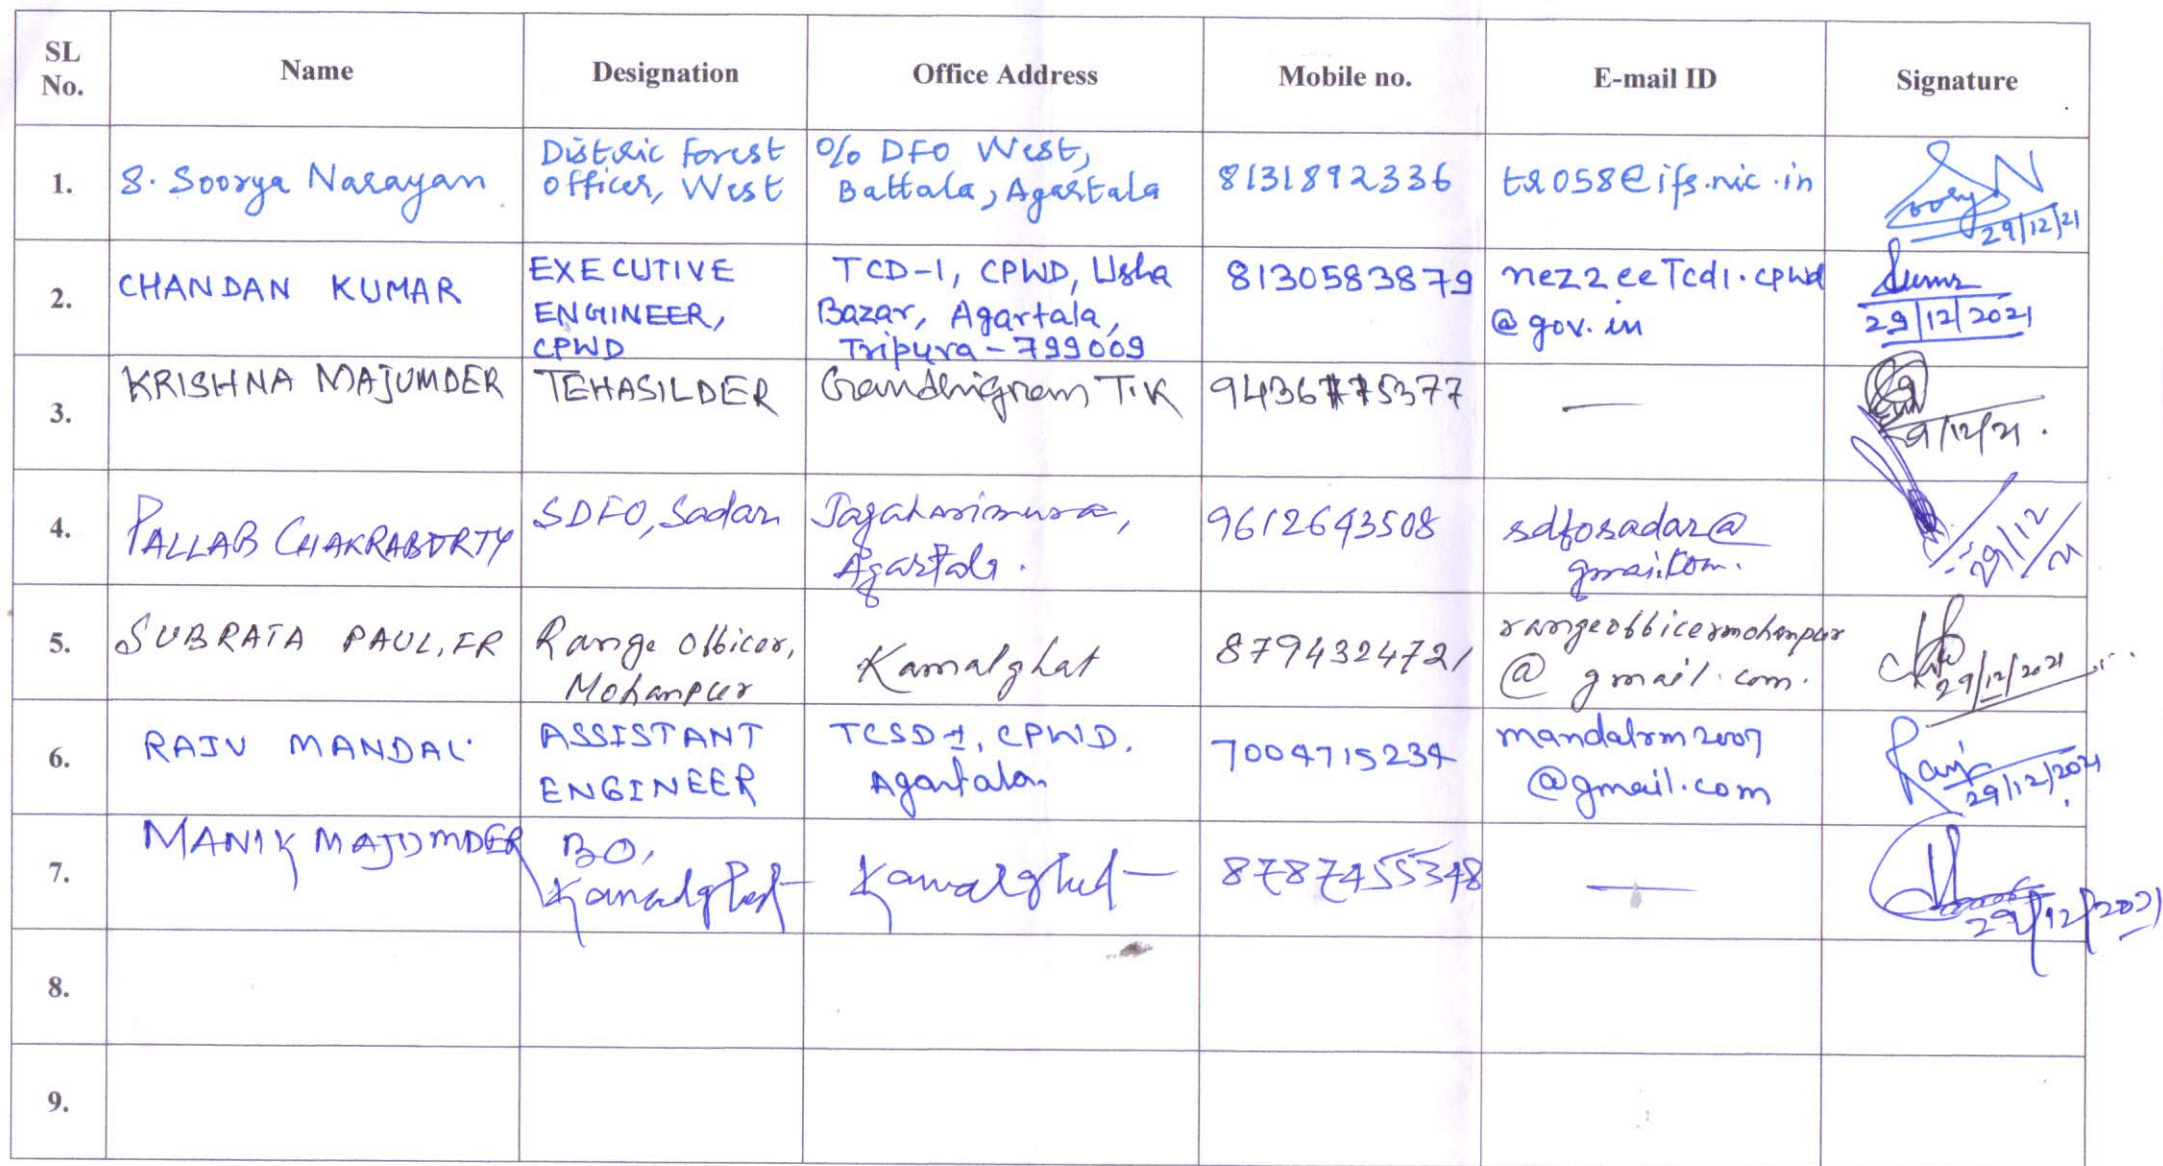 SL No. Name Designation Office Address Mobile no. E-mail ID Signature
1. S. Soorya Narayan Distric Forest Officer, West % DFO West, Battala, Agartala 8131892336 tr058@ifs.nic.in 29/12/21
2. CHANDAN KUMAR EXECUTIVE ENGINEER, CPWD TCD-1, CPWD, Usha Bazar, Agartala, Tripura - 799009 8130583879 nez2eeTcd1.cpwd @gov.in 29/12/2021
3. KRISHNA MAJUMDER TEHASILDER Gandhigram T.K — 29/12/21.
4. PALLAB CHAKRABORTY SDFO, Sadar Agartala. 9612643508 sdfosadar@ 29/12/21
5. SUBRATA PAUL, FR Range Officer, Mohanpur Kamalghat 8794324721 rangeofficermohanpur @gmail.com. 29/12/2021
6. RAJU MANDAL ASSISTANT ENGINEER TCSD-1, CPWD, Agartala 7004715234 mandalrm2007 @gmail.com 29/12/2021
7. MANIK MAJUMDER BO, Kamalghat Kamalghat 8787455348 — 29/12/2021
8.
9.